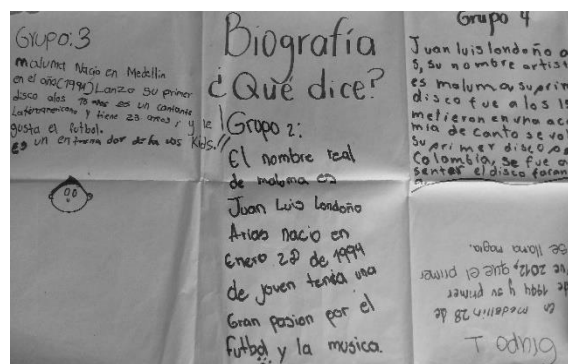 Grupo:3
maluma Nacio en Medellin
en el año(1994) Lanzo su primer
disco alos años es un cantante
Latinoamericano y tiene 23 años, y le
gusta el futbol.
es un entrena dor de la vos Kids.
Biografía
¿Qué dice?
Grupo 2:
El nombre real
de maluma es
Juan Luis Londoño
Arias nacio en
Enero 28 de 1994
de joven tenia una
Gran pasion por el
futbol y la musica.
Grupo 4
Juan luis londoño a
s, su nombre artis
es maluma su prim
disco fue a los 1
metieron en una ac
mia de canto se vol
su primer disco
Colombia, se fue a
sentar el disco
Grupo 1
en medellin 28 de
de 1994 y su primer
fue 2012, que el primer
se llama magia.